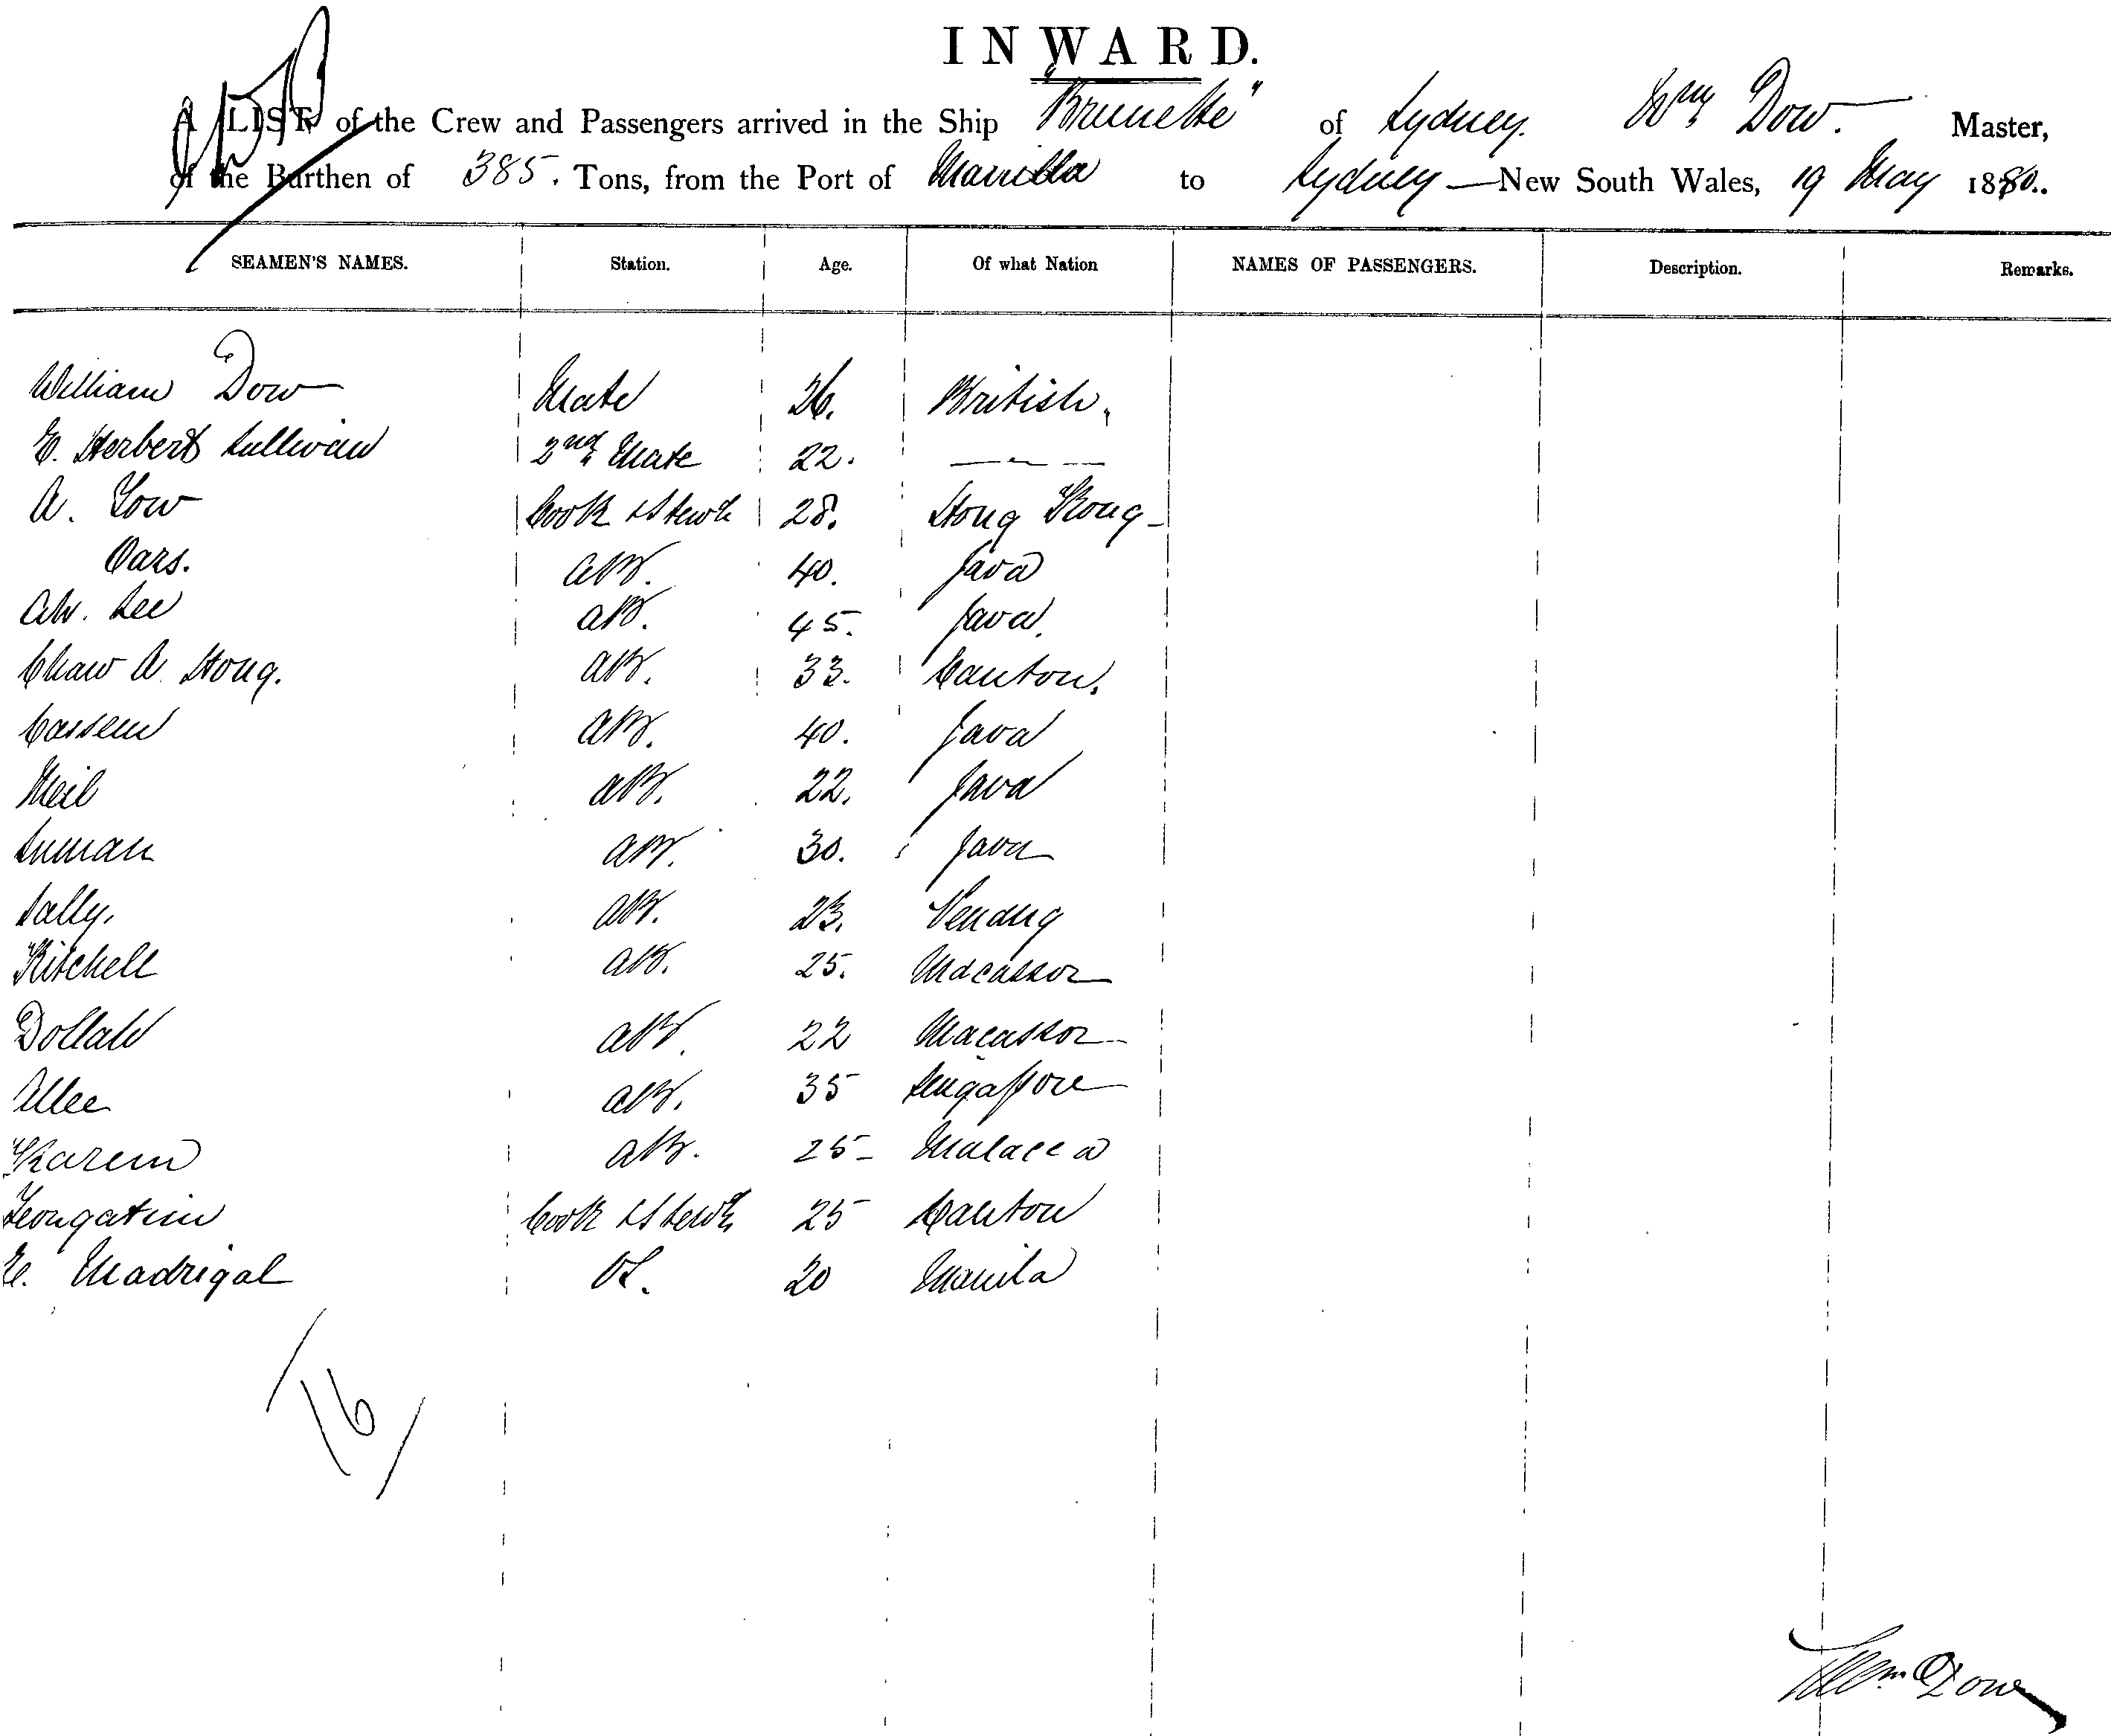 INWARD.
A LIST of the Crew and Passengers arrived in the Ship "Brunette" of Sydney. Wm Dow. Master,
of the Burthen of 385. Tons, from the Port of Manilla to Sydney — New South Wales, 19 May 1880..
SEAMEN'S NAMES. Station. Age. Of what Nation NAMES OF PASSENGERS. Description. Remarks.
William Dow Mate 26. British.
E. Herbert Sullivan 2nd Mate 22. — " —
A. Yow Cook & Stewd 28. Hong Kong
Oars. AB. 40. Java
Ah. Lee AB. 45. Java.
Chaw A. Hong. AB. 33. Canton.
Cassem AB. 40. Java
Neil AB. 22. Java
AB. 30. Java
Sally. AB. 23.
Kitchell AB. 25. Macassor
Dollah AB. 22 Macassor
Allee AB. 35 Singapore
Karem AB. 25 Malacca
Cook & Stewd 25 Canton
E. Madrigal OS. 20 Manila
16
Wm Dow